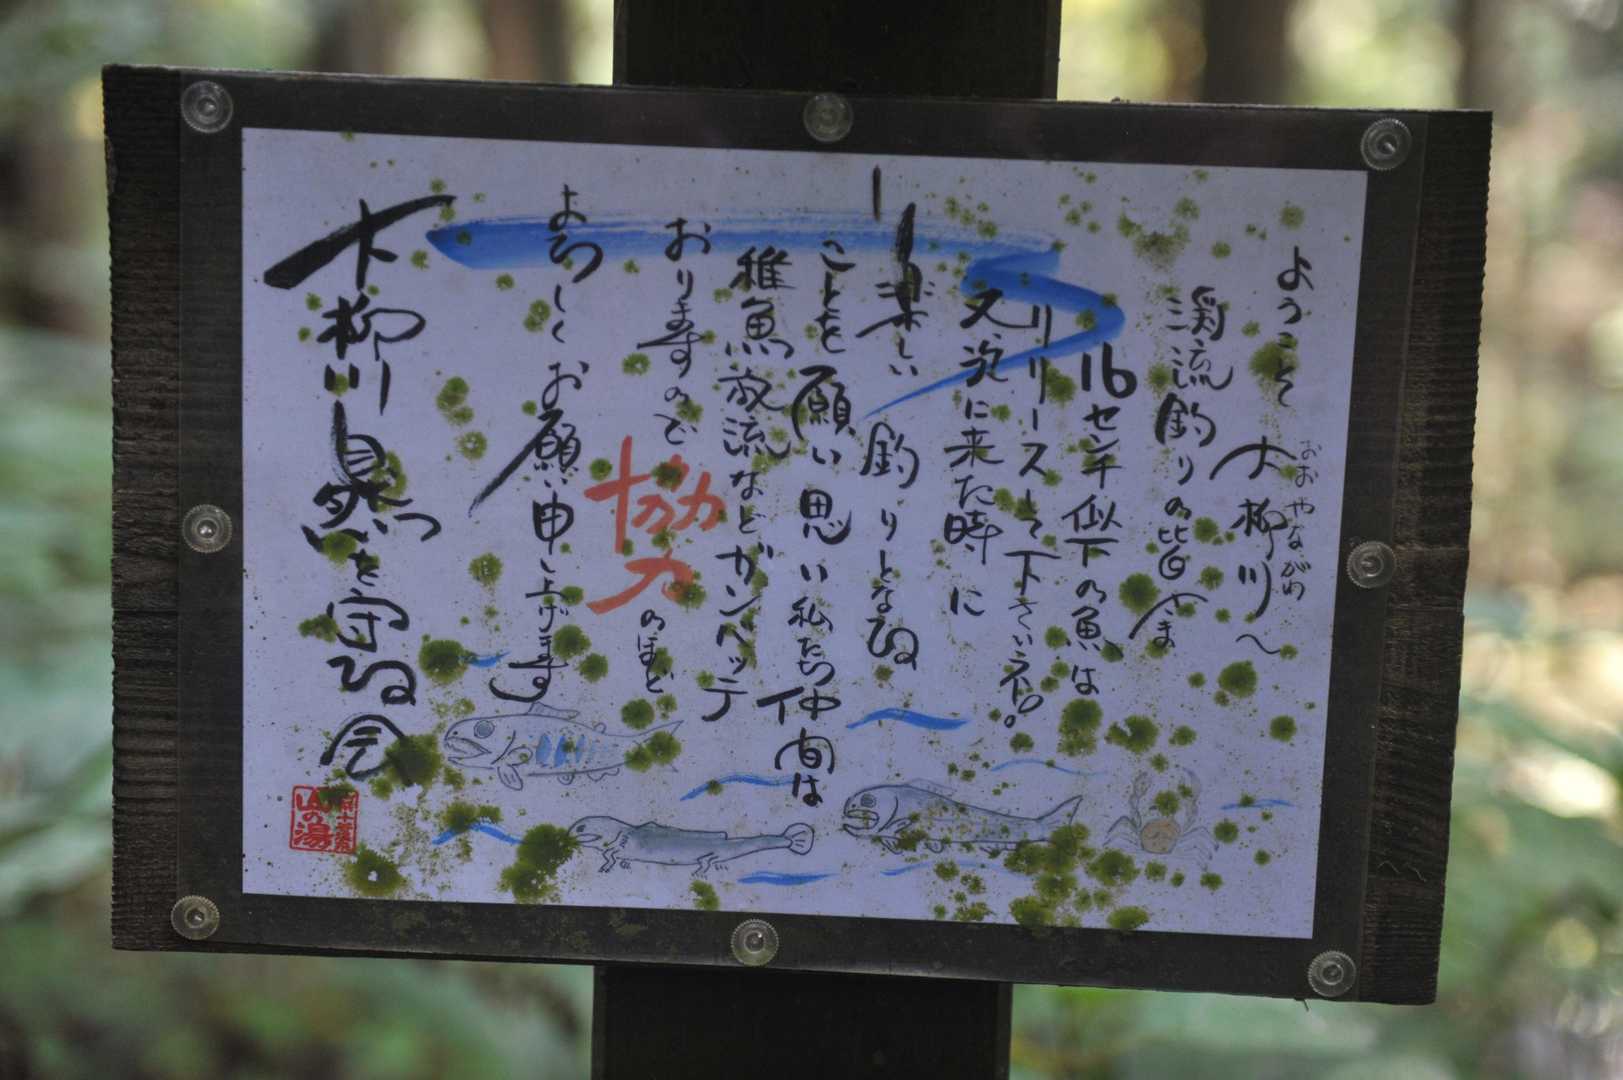 ようこそ 大柳川へ
おおやながわ
渓流釣りの皆さま
16センチ似下の魚は
リリースして下さいネ!!。
又、次に来た時に
楽しい釣りとなる
ことを願い思い私たち仲間は
稚魚放流などガンバッテ
おりますので
協力
のほど
よろしくお願い申し上げます
大柳川渓を守る会
山の湯